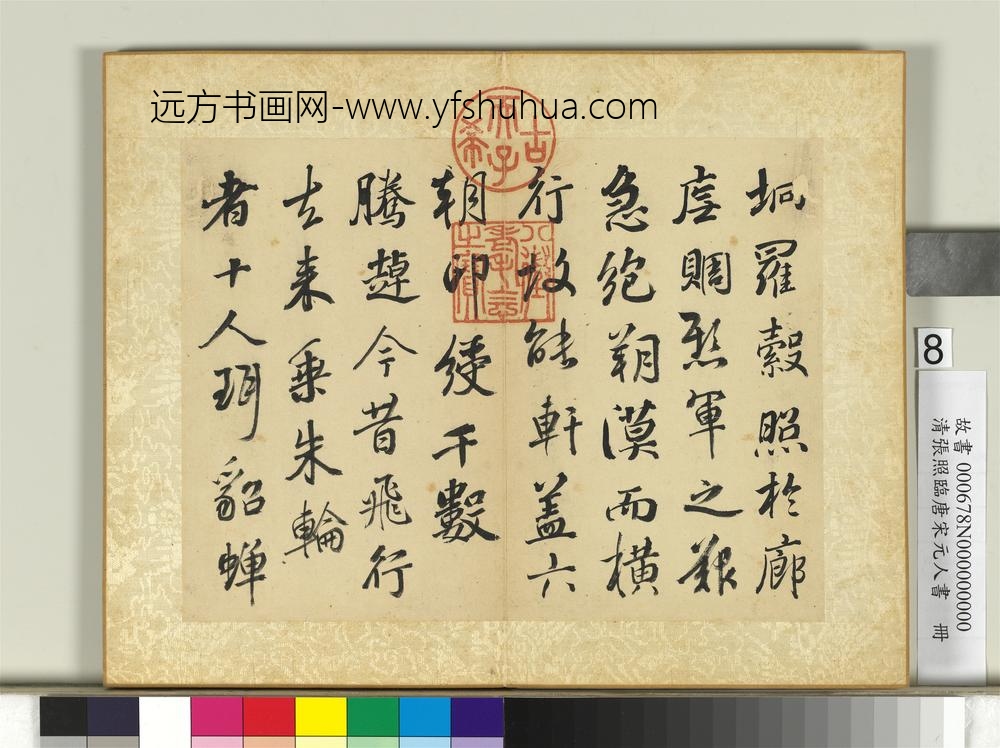 远方书画网-www.yfshuhua.com
古希天子
八徵耄念之寶
坰羅縠照於廊
賙愍軍之艱
急絕朔漠而橫
行故能軒蓋六
朝印綬千數
騰趠今昔飛行
去來乘朱輪
者十人珥貂蟬
8
故書 000678N000000000
清張照臨唐宋元人書 冊